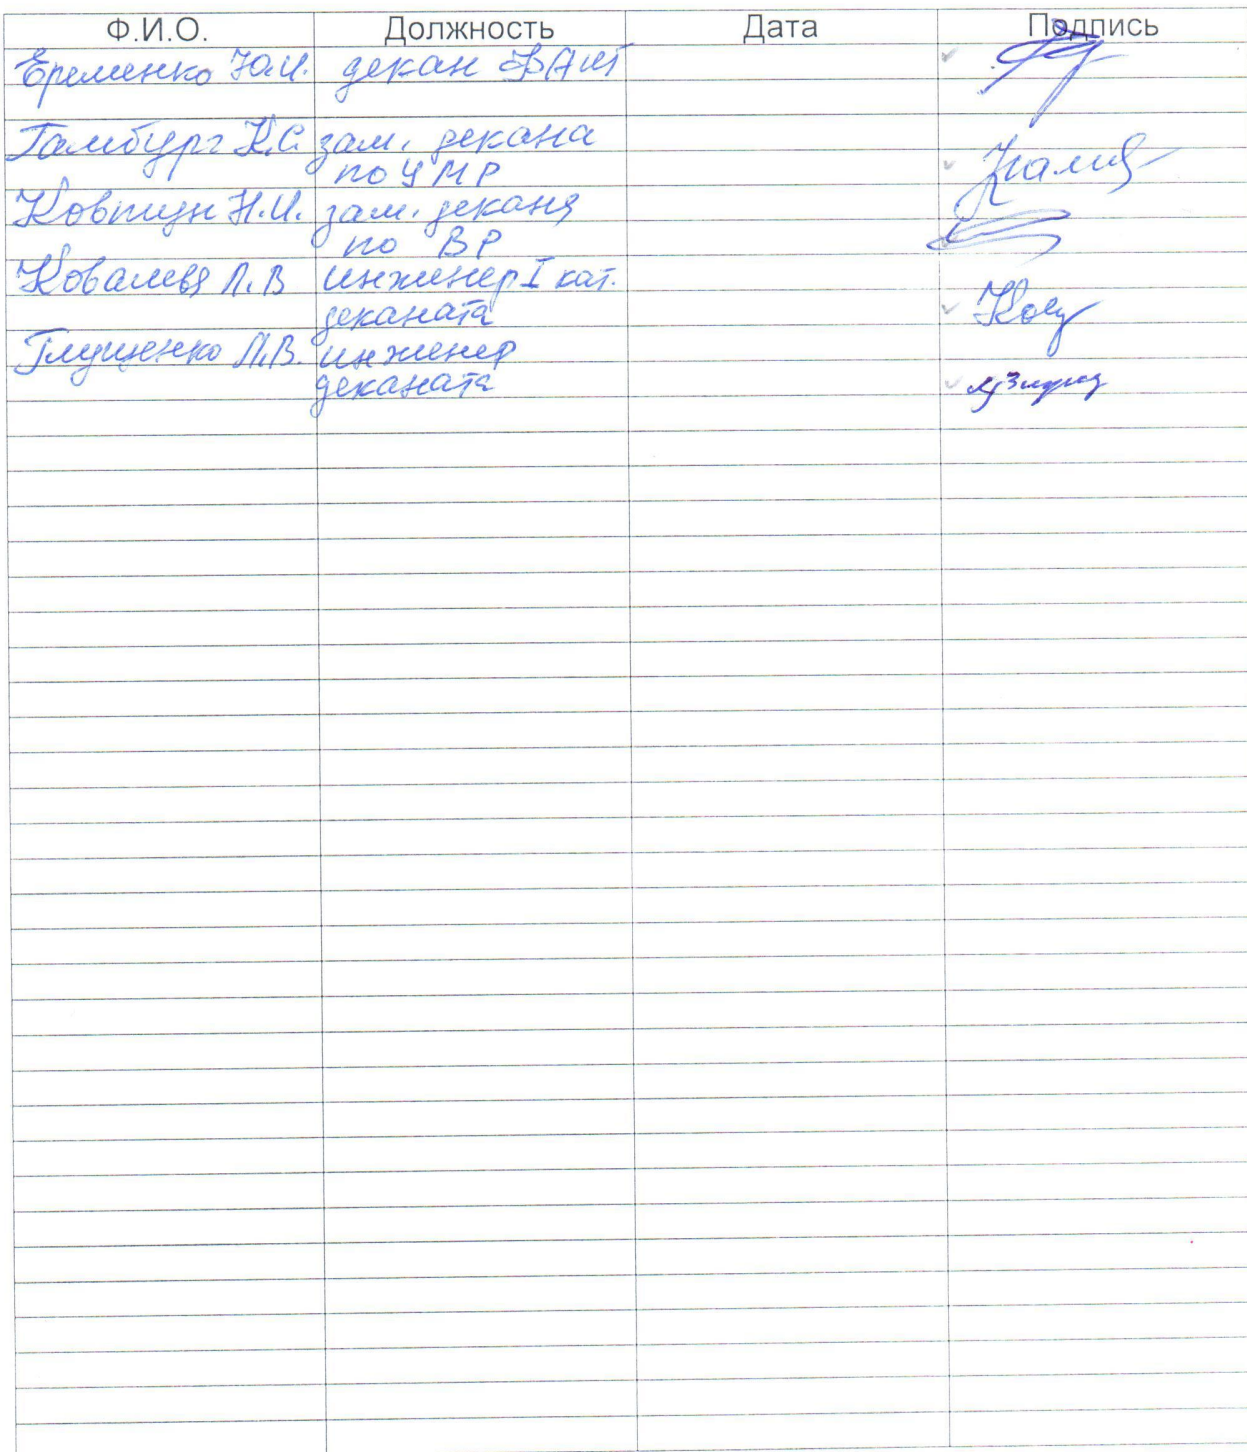 Ф.И.О. Должность Дата Подпись
Еременко Ю.И. декан ФАИТ
Гамбург К.С. зам. декана
по УМР
Ковтун Н.И. зам. декана
по ВР
Ковалева Л.В инженер I кат.
деканата
Глущенко Л.В. инженер
деканата